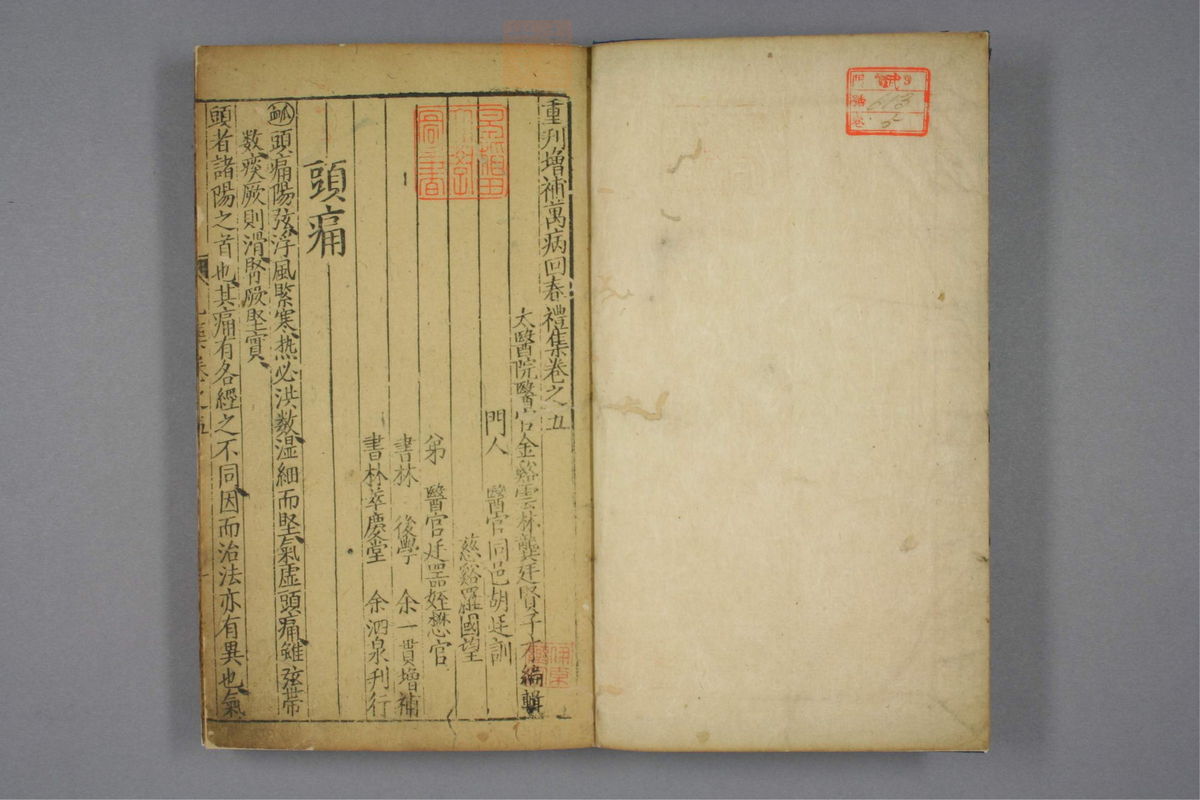 重刋増補萬病回春禮集卷之五
太醫院醫官金谿雲林龔廷賢子才編輯
門人 醫官同邑胡廷訓
慈谿羅國望
弟 醫官廷器姪懋官
書林 後學 余一貫增補
書林萃慶堂 余泗泉刋行
頭痛
頭痛陽弦浮風緊寒熱必洪数湿細而堅氣虛頭痛雖弦帶
数痰厥則滑腎厥堅實
頭者諸陽之首也其痛有各經之不同因而治法亦有異也氣
早稻田